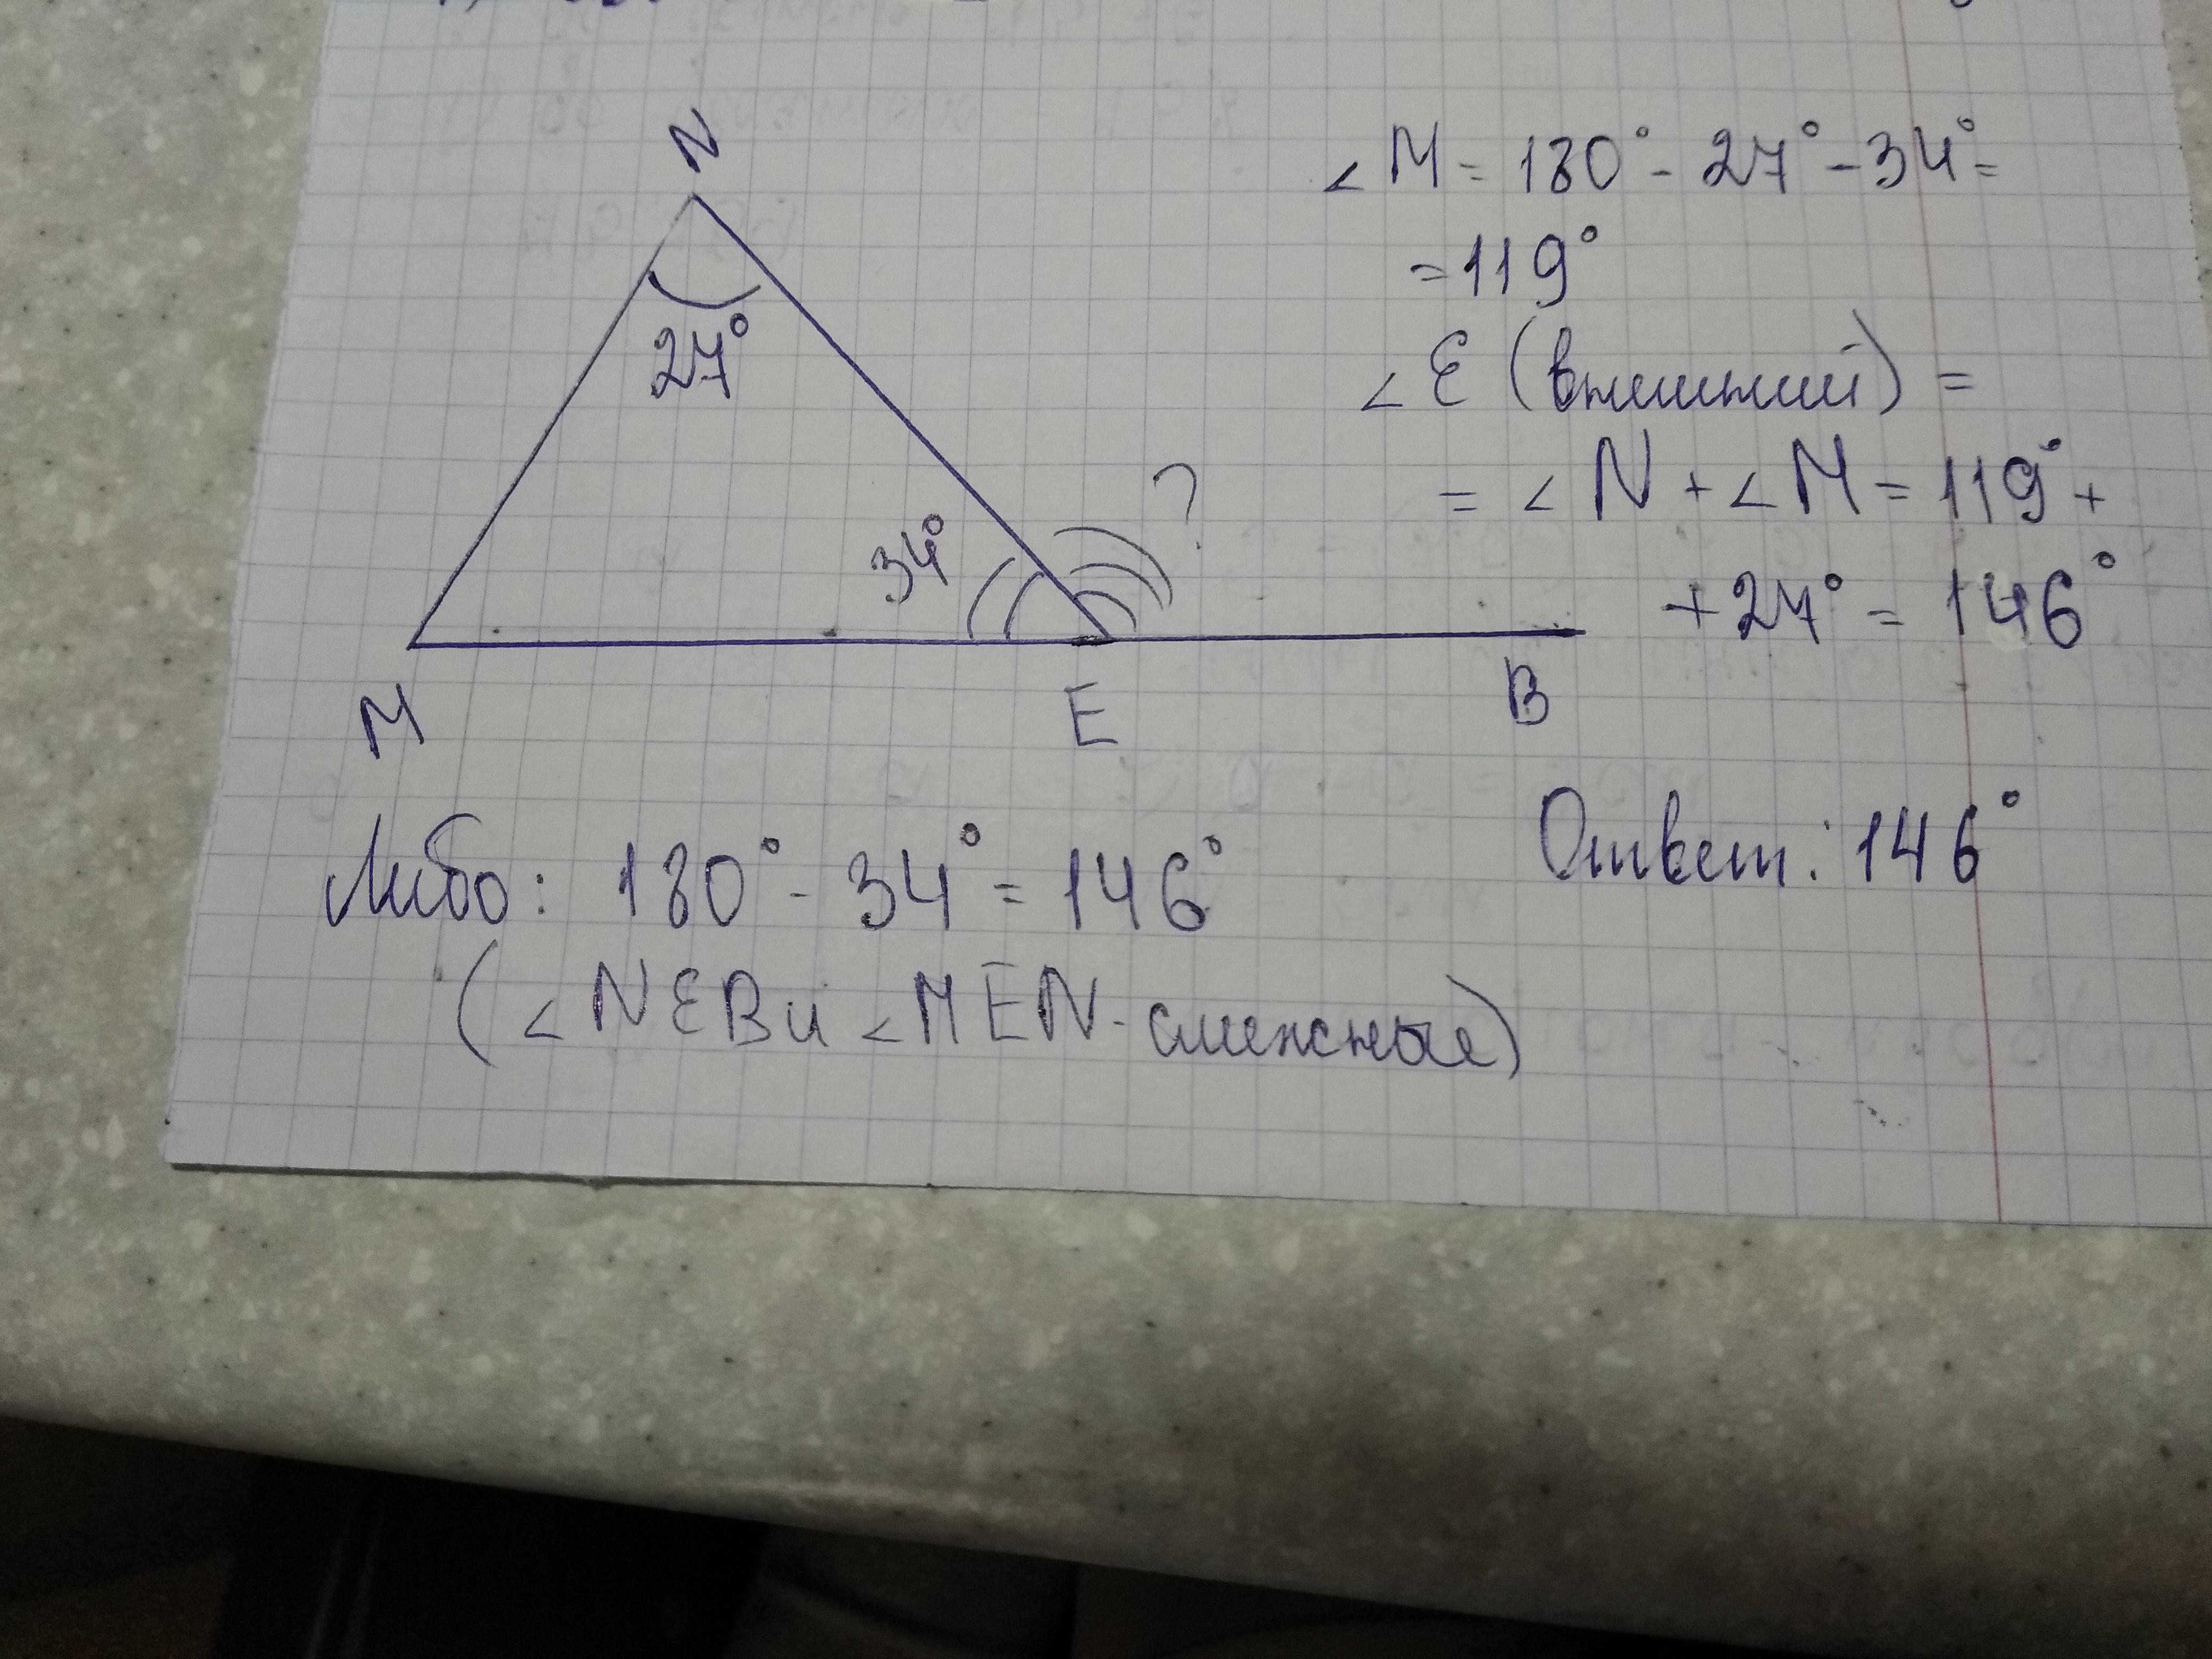 N
27°
34°
?
M
E
B
∠M = 180° - 27° - 34° =
= 119°
∠E (внешний) =
= ∠N + ∠M = 119° +
+ 27° = 146°
Ответ: 146°
Либо: 180° - 34° = 146°
(∠NEB и ∠MEN - смежные)